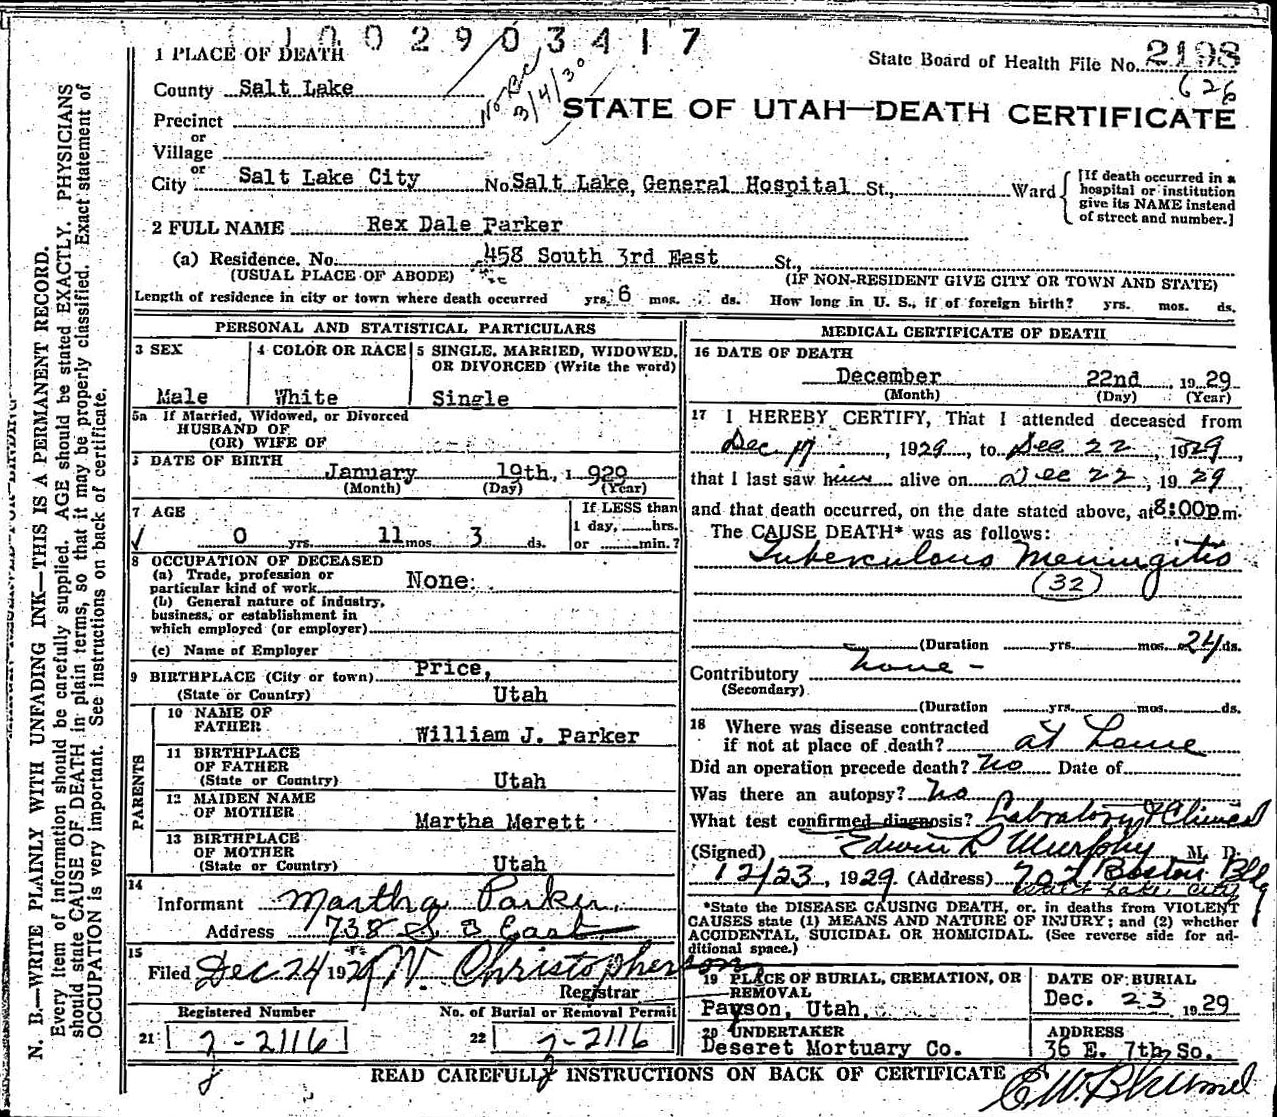 1002903417
1 PLACE OF DEATH
State Board of Health File No. 2198
626
County Salt Lake
No BC
3/4/30
STATE OF UTAH—DEATH CERTIFICATE
Precinct
or
Village
or
City Salt Lake City No. Salt Lake, General Hospital St., Ward
[If death occurred in a hospital or institution give its NAME instead of street and number.]
2 FULL NAME Rex Dale Parker
(a) Residence. No. 458 South 3rd East St.,
(USUAL PLACE OF ABODE) (IF NON-RESIDENT GIVE CITY OR TOWN AND STATE)
Length of residence in city or town where death occurred yrs. 6 mos. ds. How long in U. S., if of foreign birth? yrs. mos. ds.
PERSONAL AND STATISTICAL PARTICULARS
3 SEX
Male
4 COLOR OR RACE
White
5 SINGLE, MARRIED, WIDOWED,
OR DIVORCED (Write the word)
Single
5a If Married, Widowed, or Divorced
HUSBAND OF
(OR) WIFE OF
DATE OF BIRTH
January 19th, 1929
(Month) (Day) (Year)
7 AGE
0 yrs. 11 mos. 3 ds.
If LESS than
1 day, hrs.
or min.?
8 OCCUPATION OF DECEASED
(a) Trade, profession or
particular kind of work None.
(b) General nature of industry,
business, or establishment in
which employed (or employer)
(c) Name of Employer
9 BIRTHPLACE (City or town) Price,
(State or Country) Utah
PARENTS
10 NAME OF
FATHER William J. Parker
11 BIRTHPLACE
OF FATHER
(State or Country) Utah
12 MAIDEN NAME
OF MOTHER Martha Merett
13 BIRTHPLACE
OF MOTHER
(State or Country) Utah
14
Informant Martha Parker
Address 738 S 3 East
15
Filed Dec 24 1929 W. Christopherson
Registrar
Registered Number No. of Burial or Removal Permit
21 2-2116 22 2-2116
MEDICAL CERTIFICATE OF DEATH
16 DATE OF DEATH
December 22nd, 1929
(Month) (Day) (Year)
17 I HEREBY CERTIFY, That I attended deceased from
Dec 17, 1929, to Dec 22, 1929,
that I last saw him alive on Dec 22, 1929
and that death occurred, on the date stated above, at 8:00p m.
The CAUSE DEATH* was as follows:
Tuberculous Meningitis
(32)
(Duration yrs. mos. 24 ds.
Contributory none -
(Secondary)
(Duration yrs. mos. ds.
18 Where was disease contracted
if not at place of death? at home
Did an operation precede death? No Date of
Was there an autopsy? No
What test confirmed diagnosis? Laboratory & Clinical
(Signed) Edwin R Murphy M. D.
12/23, 1929 (Address) 702 Boston Bldg
Salt Lake City
*State the DISEASE CAUSING DEATH, or, in deaths from VIOLENT
CAUSES state (1) MEANS AND NATURE OF INJURY; and (2) whether
ACCIDENTAL, SUICIDAL OR HOMICIDAL. (See reverse side for ad-
ditional space.)
19 PLACE OF BURIAL, CREMATION, OR
REMOVAL
Payson, Utah.
DATE OF BURIAL
Dec. 23 1929
20 UNDERTAKER
Deseret Mortuary Co.
ADDRESS
36 E. 7th So.
READ CAREFULLY INSTRUCTIONS ON BACK OF CERTIFICATE
N. B.—WRITE PLAINLY WITH UNFADING INK—THIS IS A PERMANENT RECORD.
Every item of information should be carefully supplied. AGE should be stated EXACTLY. PHYSICIANS
should state CAUSE OF DEATH in plain terms, so that it may be properly classified. Exact statement of
OCCUPATION is very important. See instructions on back of certificate.